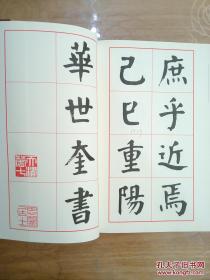 庶乎近焉
己巳重陽
華世奎書